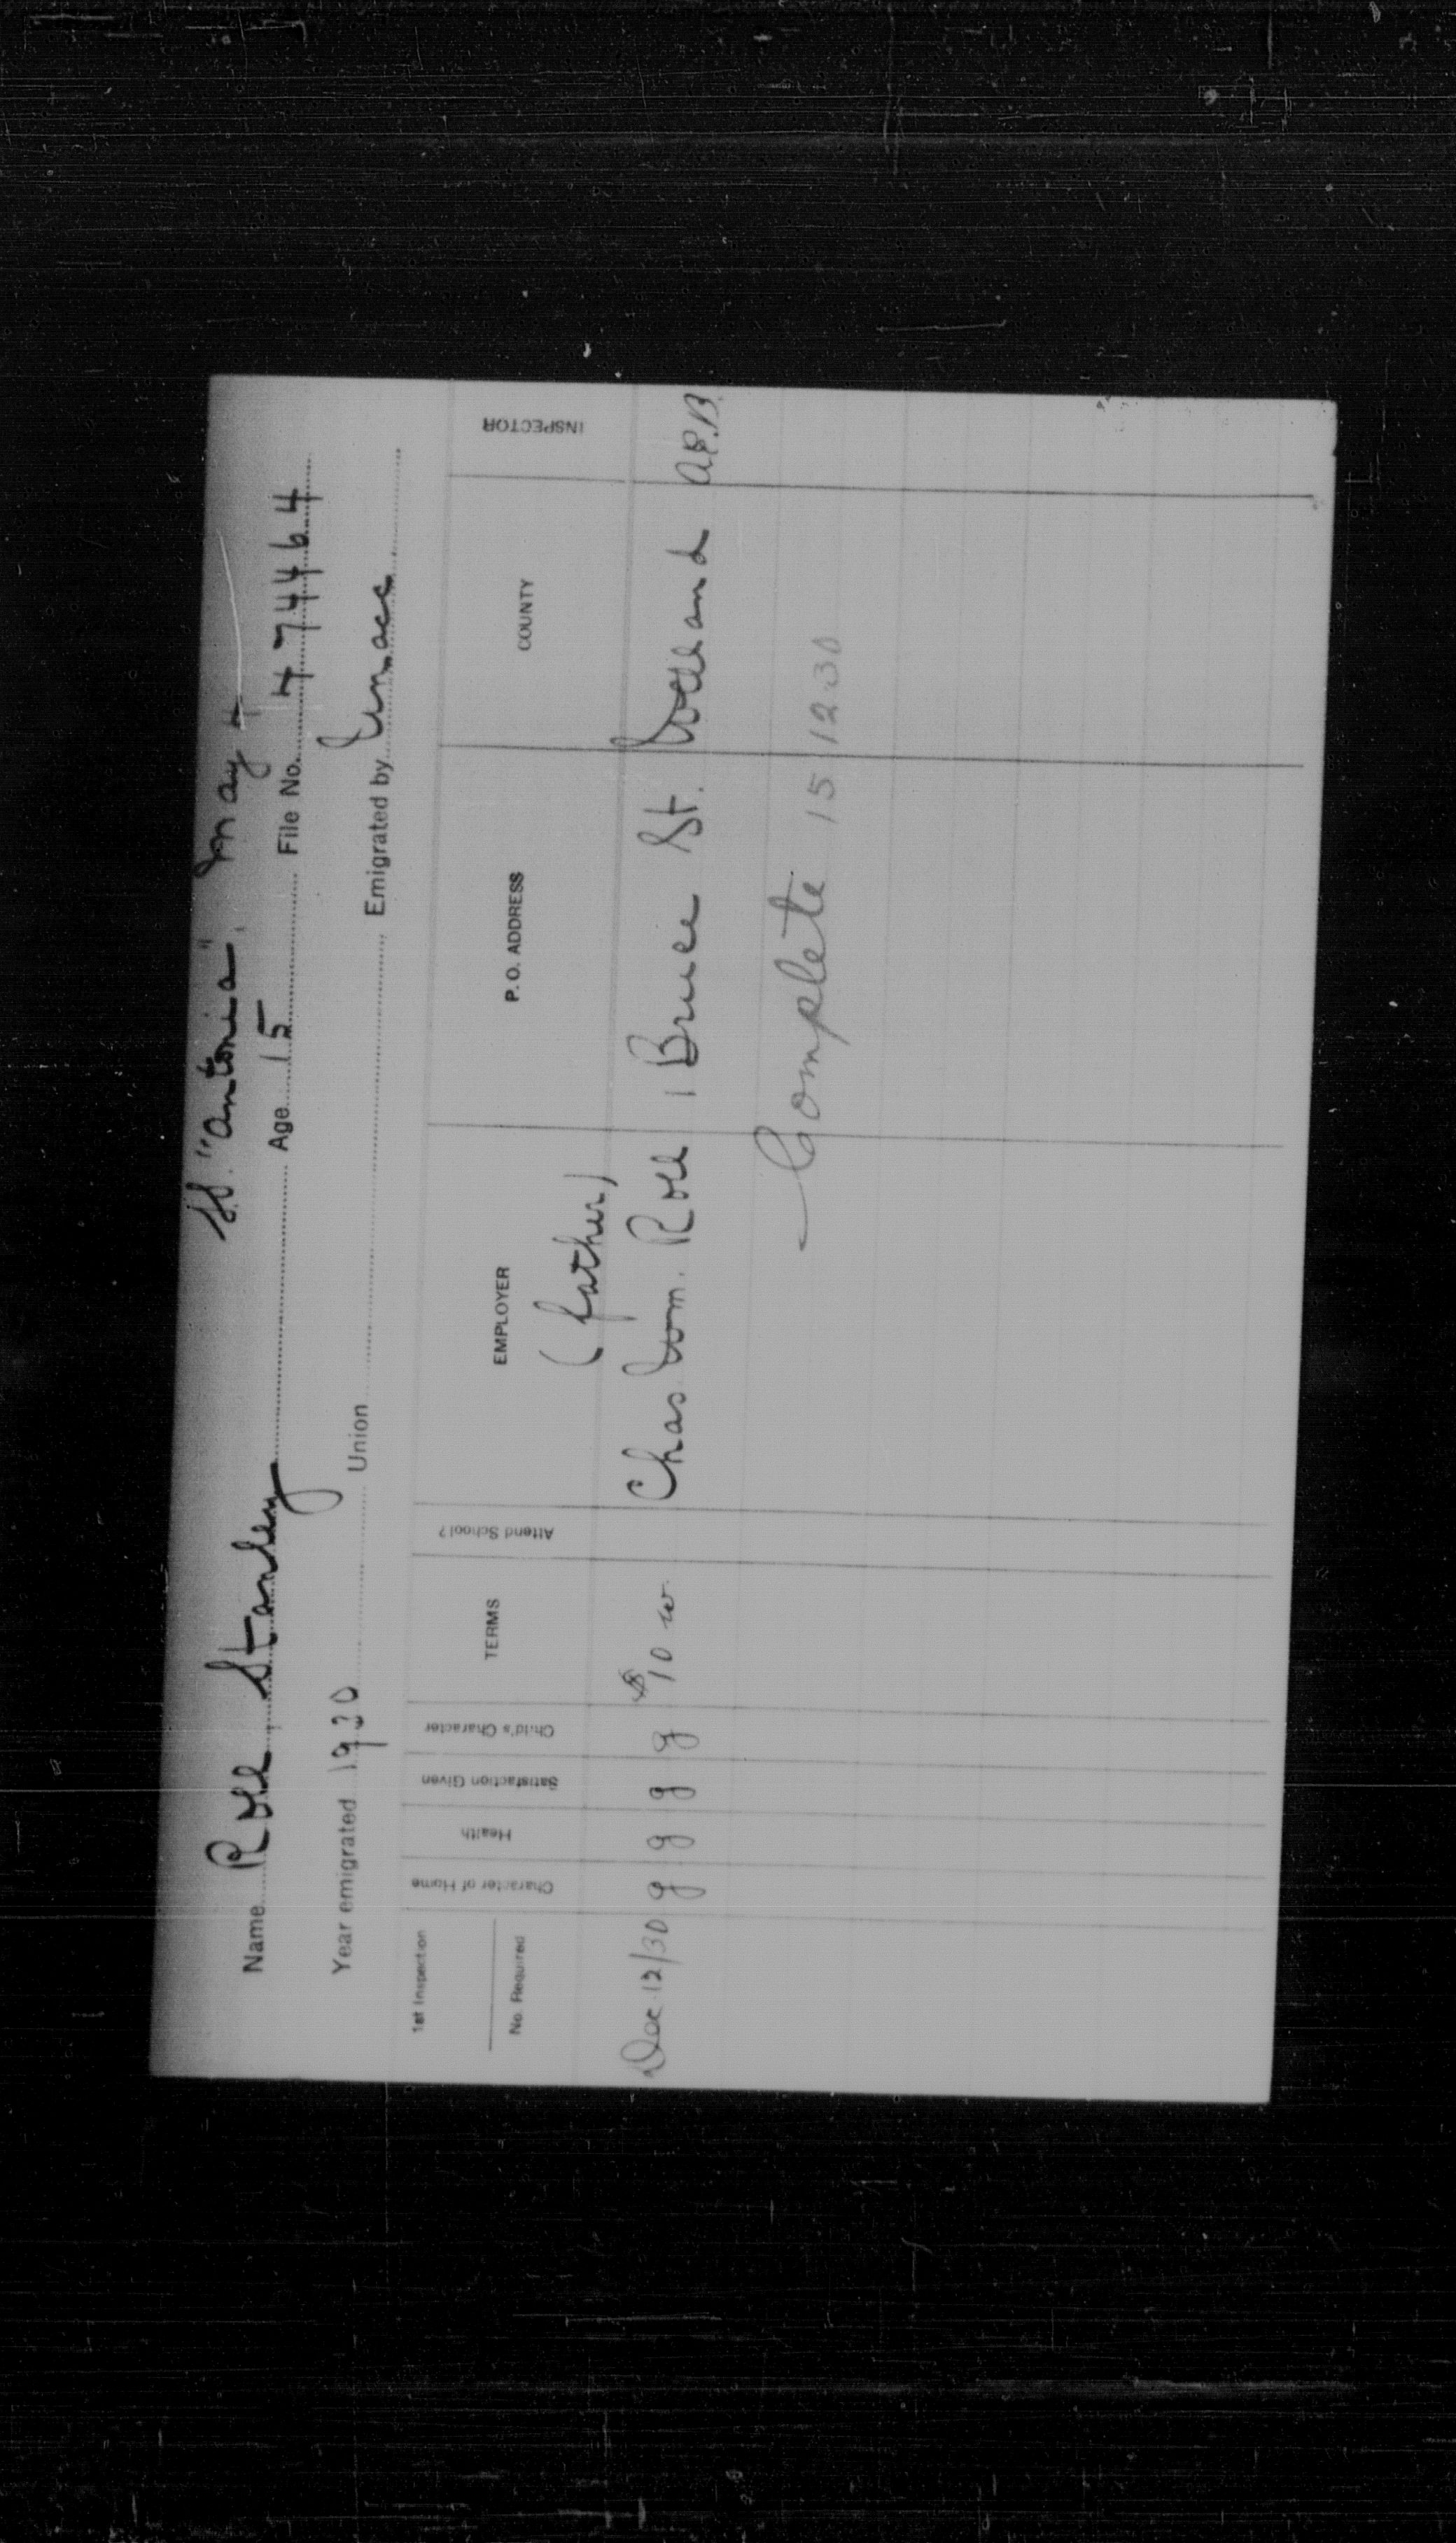 SS. "Antonia", May 4
Name Roll Stanley Age 15 File No. 474464
Year emigrated 1930 Union Emigrated by
1st Inspection No. Required Character of Home Health Satisfaction Given Child's Character TERMS Attend School? EMPLOYER P. O. ADDRESS COUNTY INSPECTOR
(father)
Dec. 12/30 g g g g $10 w. Chas. Wm. Roll 1 Bruce St. Welland
Complete 15 12 30